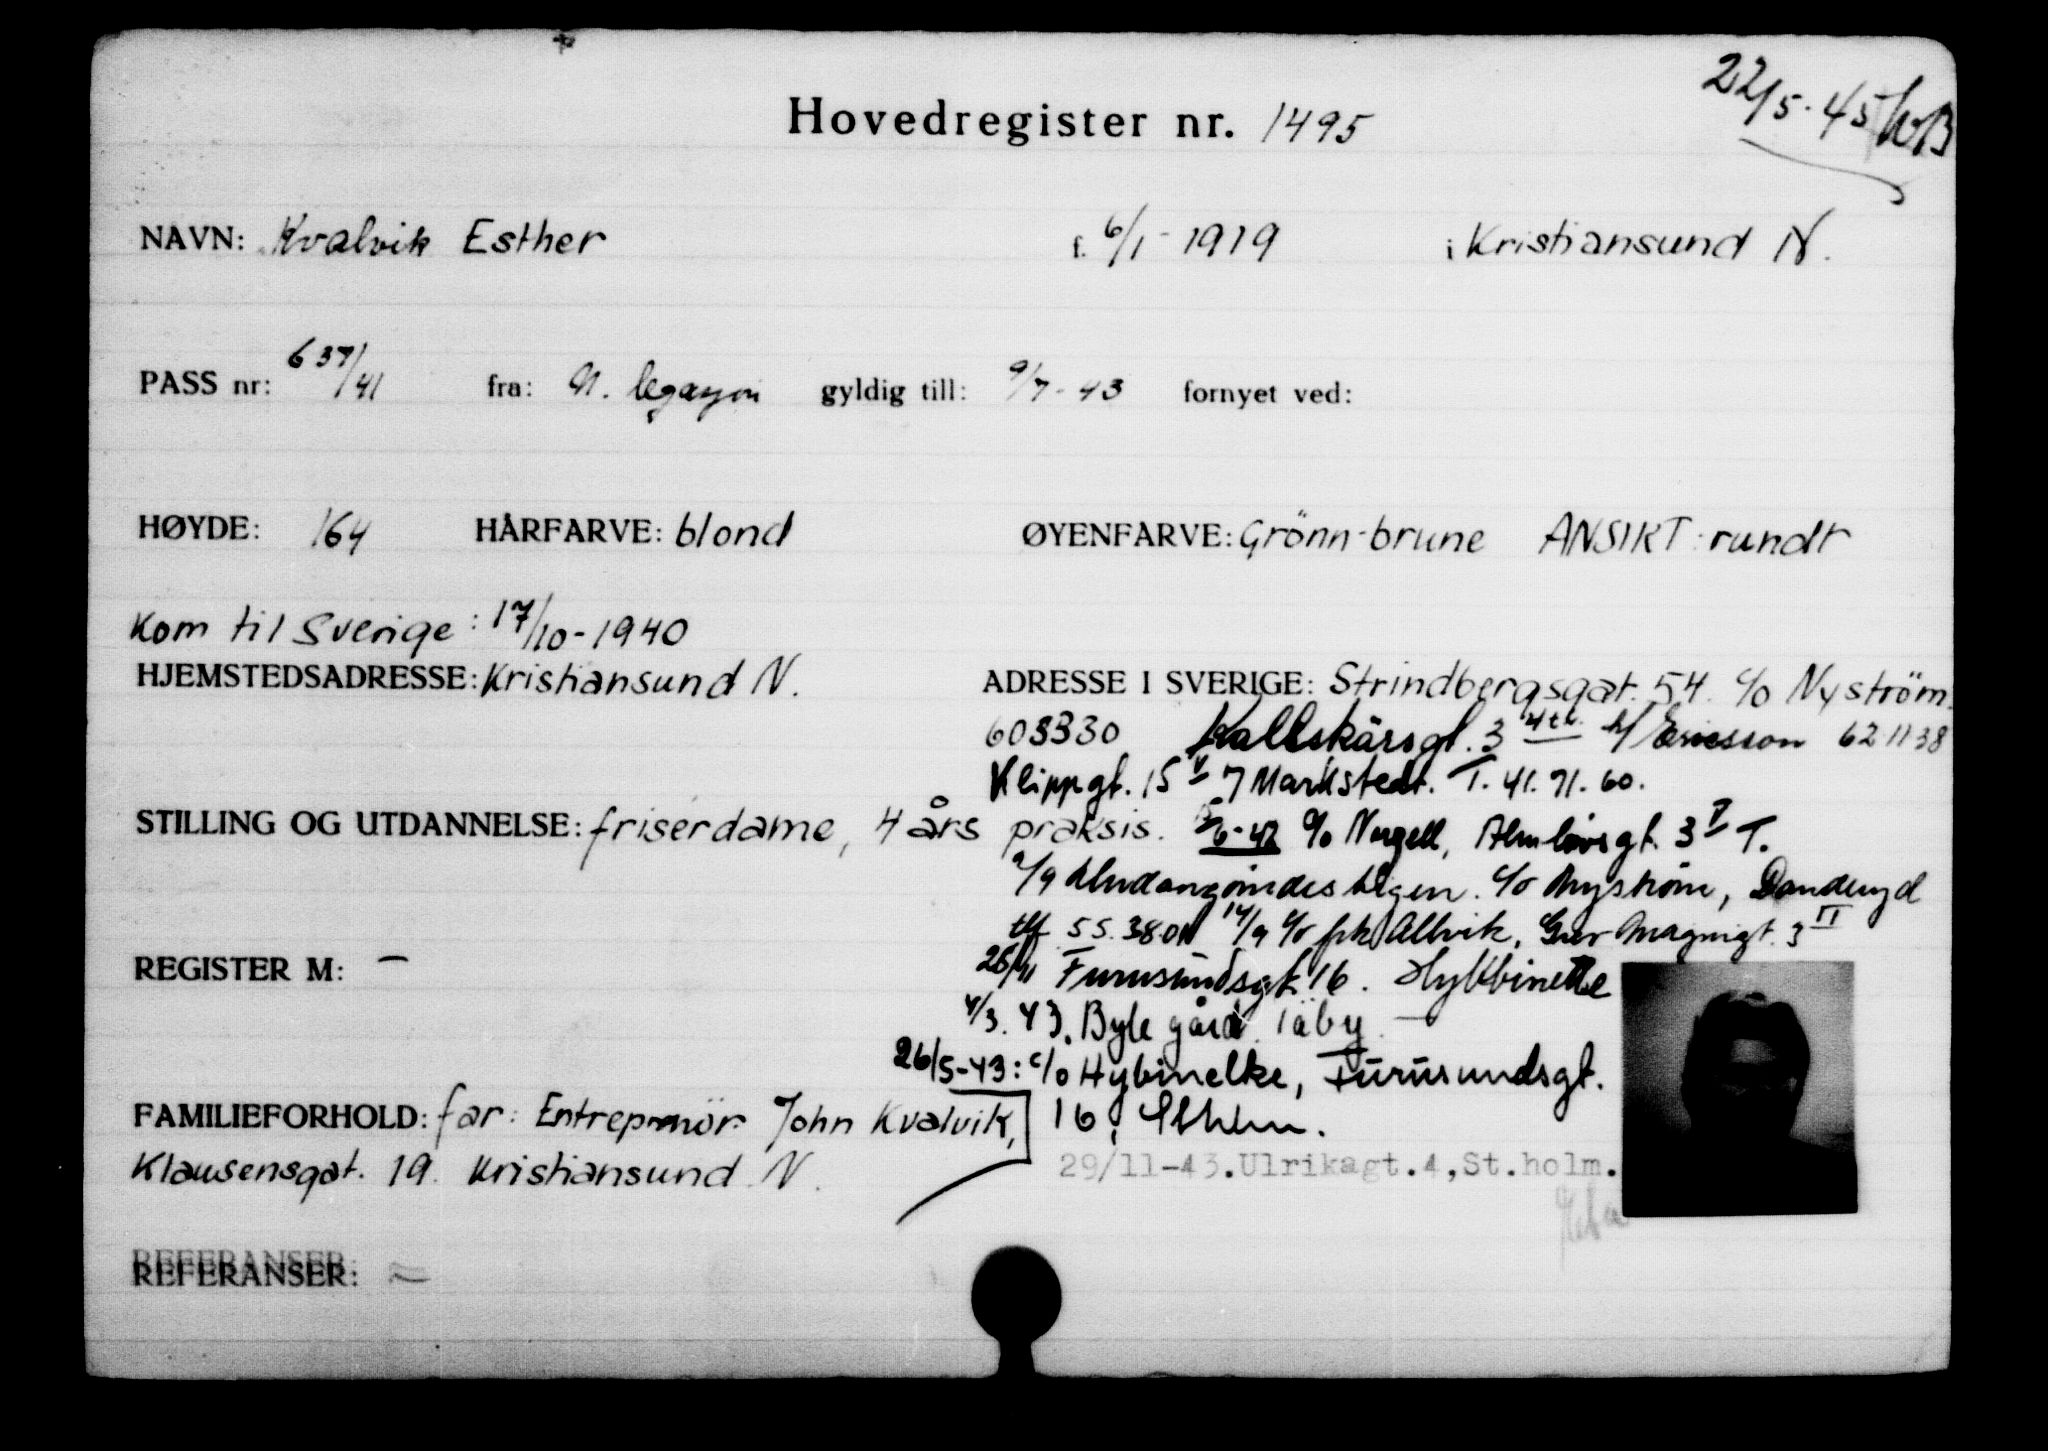 22/5-45 
Hovedregister nr. 1495
NAVN: Kvalvik Esther f. 6/1-1919 i Kristiansund N.
PASS nr: 637/41 fra: N. legasjon gyldig till: 9/7-43 fornyet ved:
HØYDE: 164 HÅRFARVE: blond ØYENFARVE: Grönn-brune ANSIKT: rundt
Kom til Sverige: 17/10-1940
HJEMSTEDSADRESSE: Kristiansund N. ADRESSE I SVERIGE: Strindbergsgat. 54. c/o Nyström.
603330 Kallskärsgt. 3 4 tr. Ericsson 62 11 38
Klippgt. 15 V Markstedt. T. 41.71.60.
STILLING OG UTDANNELSE: friserdame, 4 års praksis. 6-42 c/o Almlövsgt. 3 T.
2/9 c/o Nyström, Danderyd
tlf 55.380 14/9 c/o frk Allvik, 3 II
REGISTER M: — 26/11 Furusundsgt. 16.
4/3.43. Byle gård Täby.
26/5-43: c/o Hybinette, Furusundsgt.
FAMILIEFORHOLD: far: Entreprenör John Kvalvik, 16, Sthlm.
Klausensgat. 19. Kristiansund N. 29/11-43. Ulrikagt. 4, St.holm.
REFERANSER: